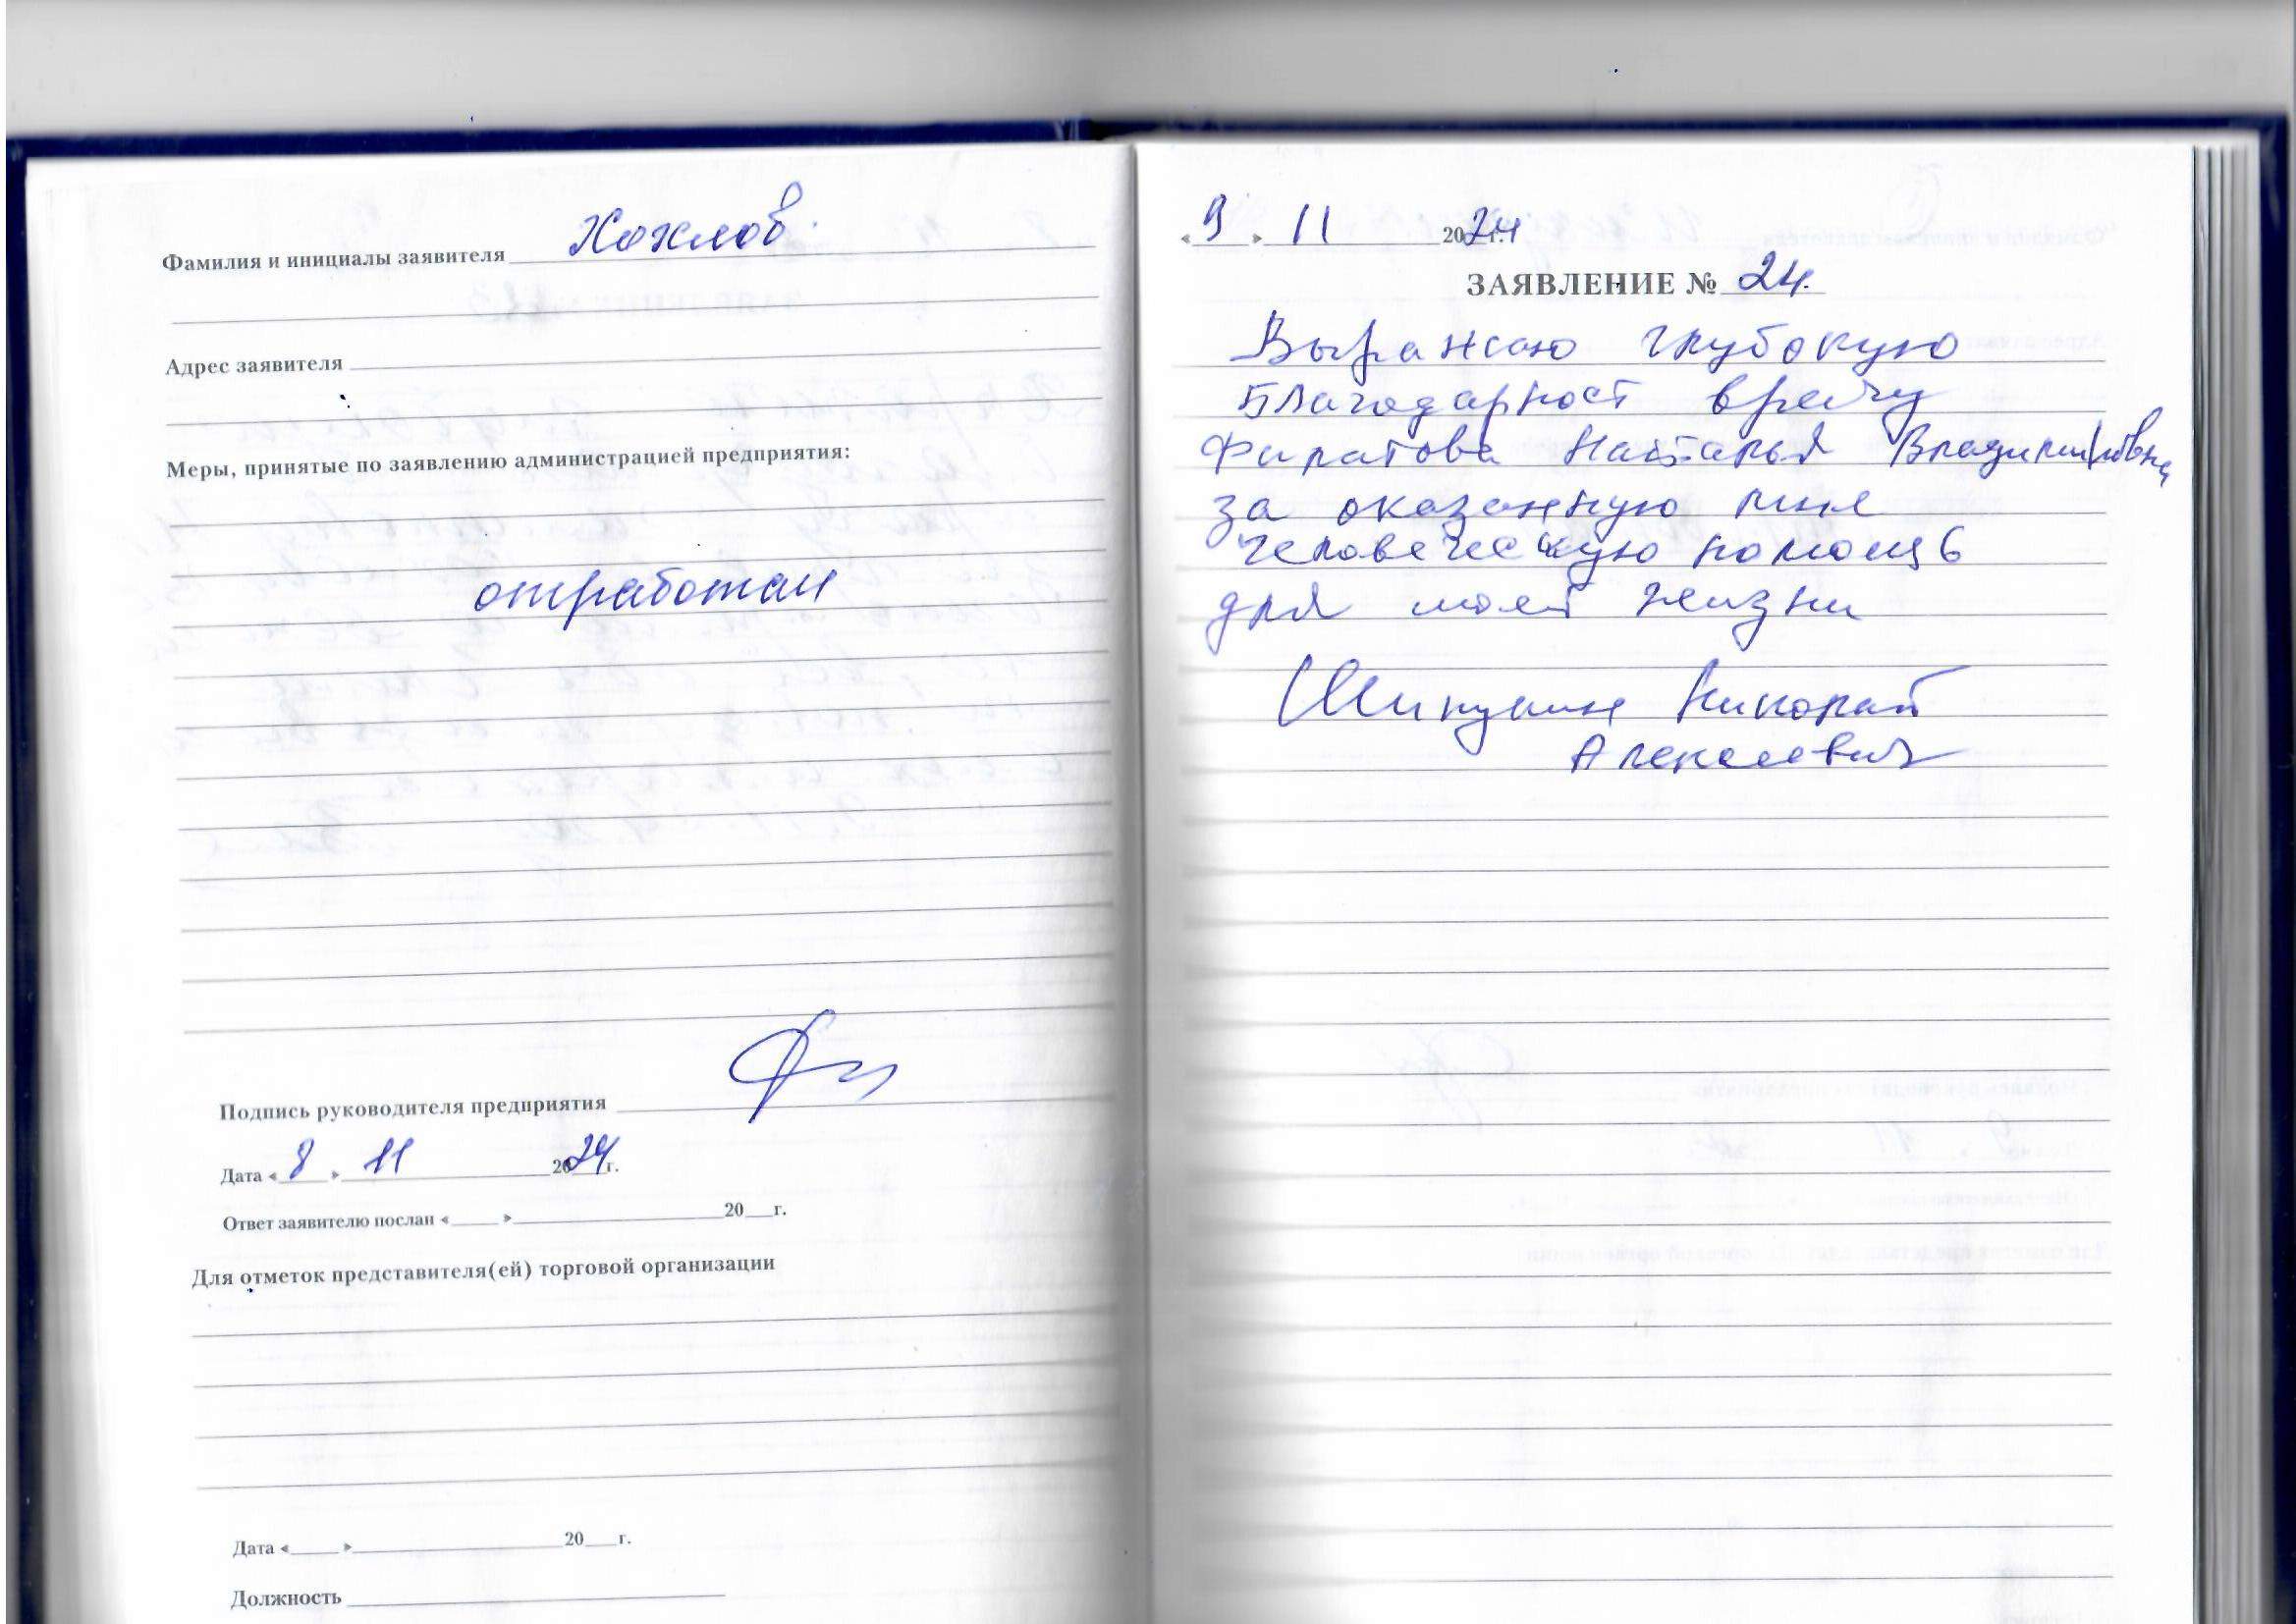 Фамилия и инициалы заявителя Хохлов.
Адрес заявителя
Меры, принятые по заявлению администрацией предприятия:
отработан
Подпись руководителя предприятия
Дата « 8 » 11 2024 г.
Ответ заявителю послан «____» ____ 20__г.
Для отметок представителя(ей) торговой организации
Дата «____» ____ 20__г.
Должность
« 9 » 11 2024 г.
ЗАЯВЛЕНИЕ № 24.
Выражаю глубокую
Благодарност врачу
Филатова Наталья Владимировна
за оказанную мне
человеческую помощь
для моей жизни
Шипунин Николай
Алексеевич